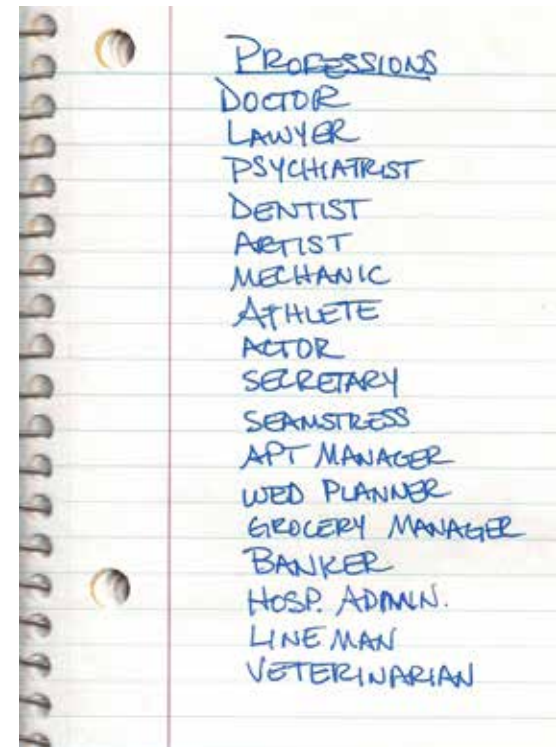 PROFESSIONS
DOCTOR
LAWYER
PSYCHIATRIST
DENTIST
ARTIST
MECHANIC
ATHLETE
ACTOR
SECRETARY
SEAMSTRESS
APT MANAGER
WED PLANNER
GROCERY MANAGER
BANKER
HOSP. ADMIN.
LINEMAN
VETERINARIAN